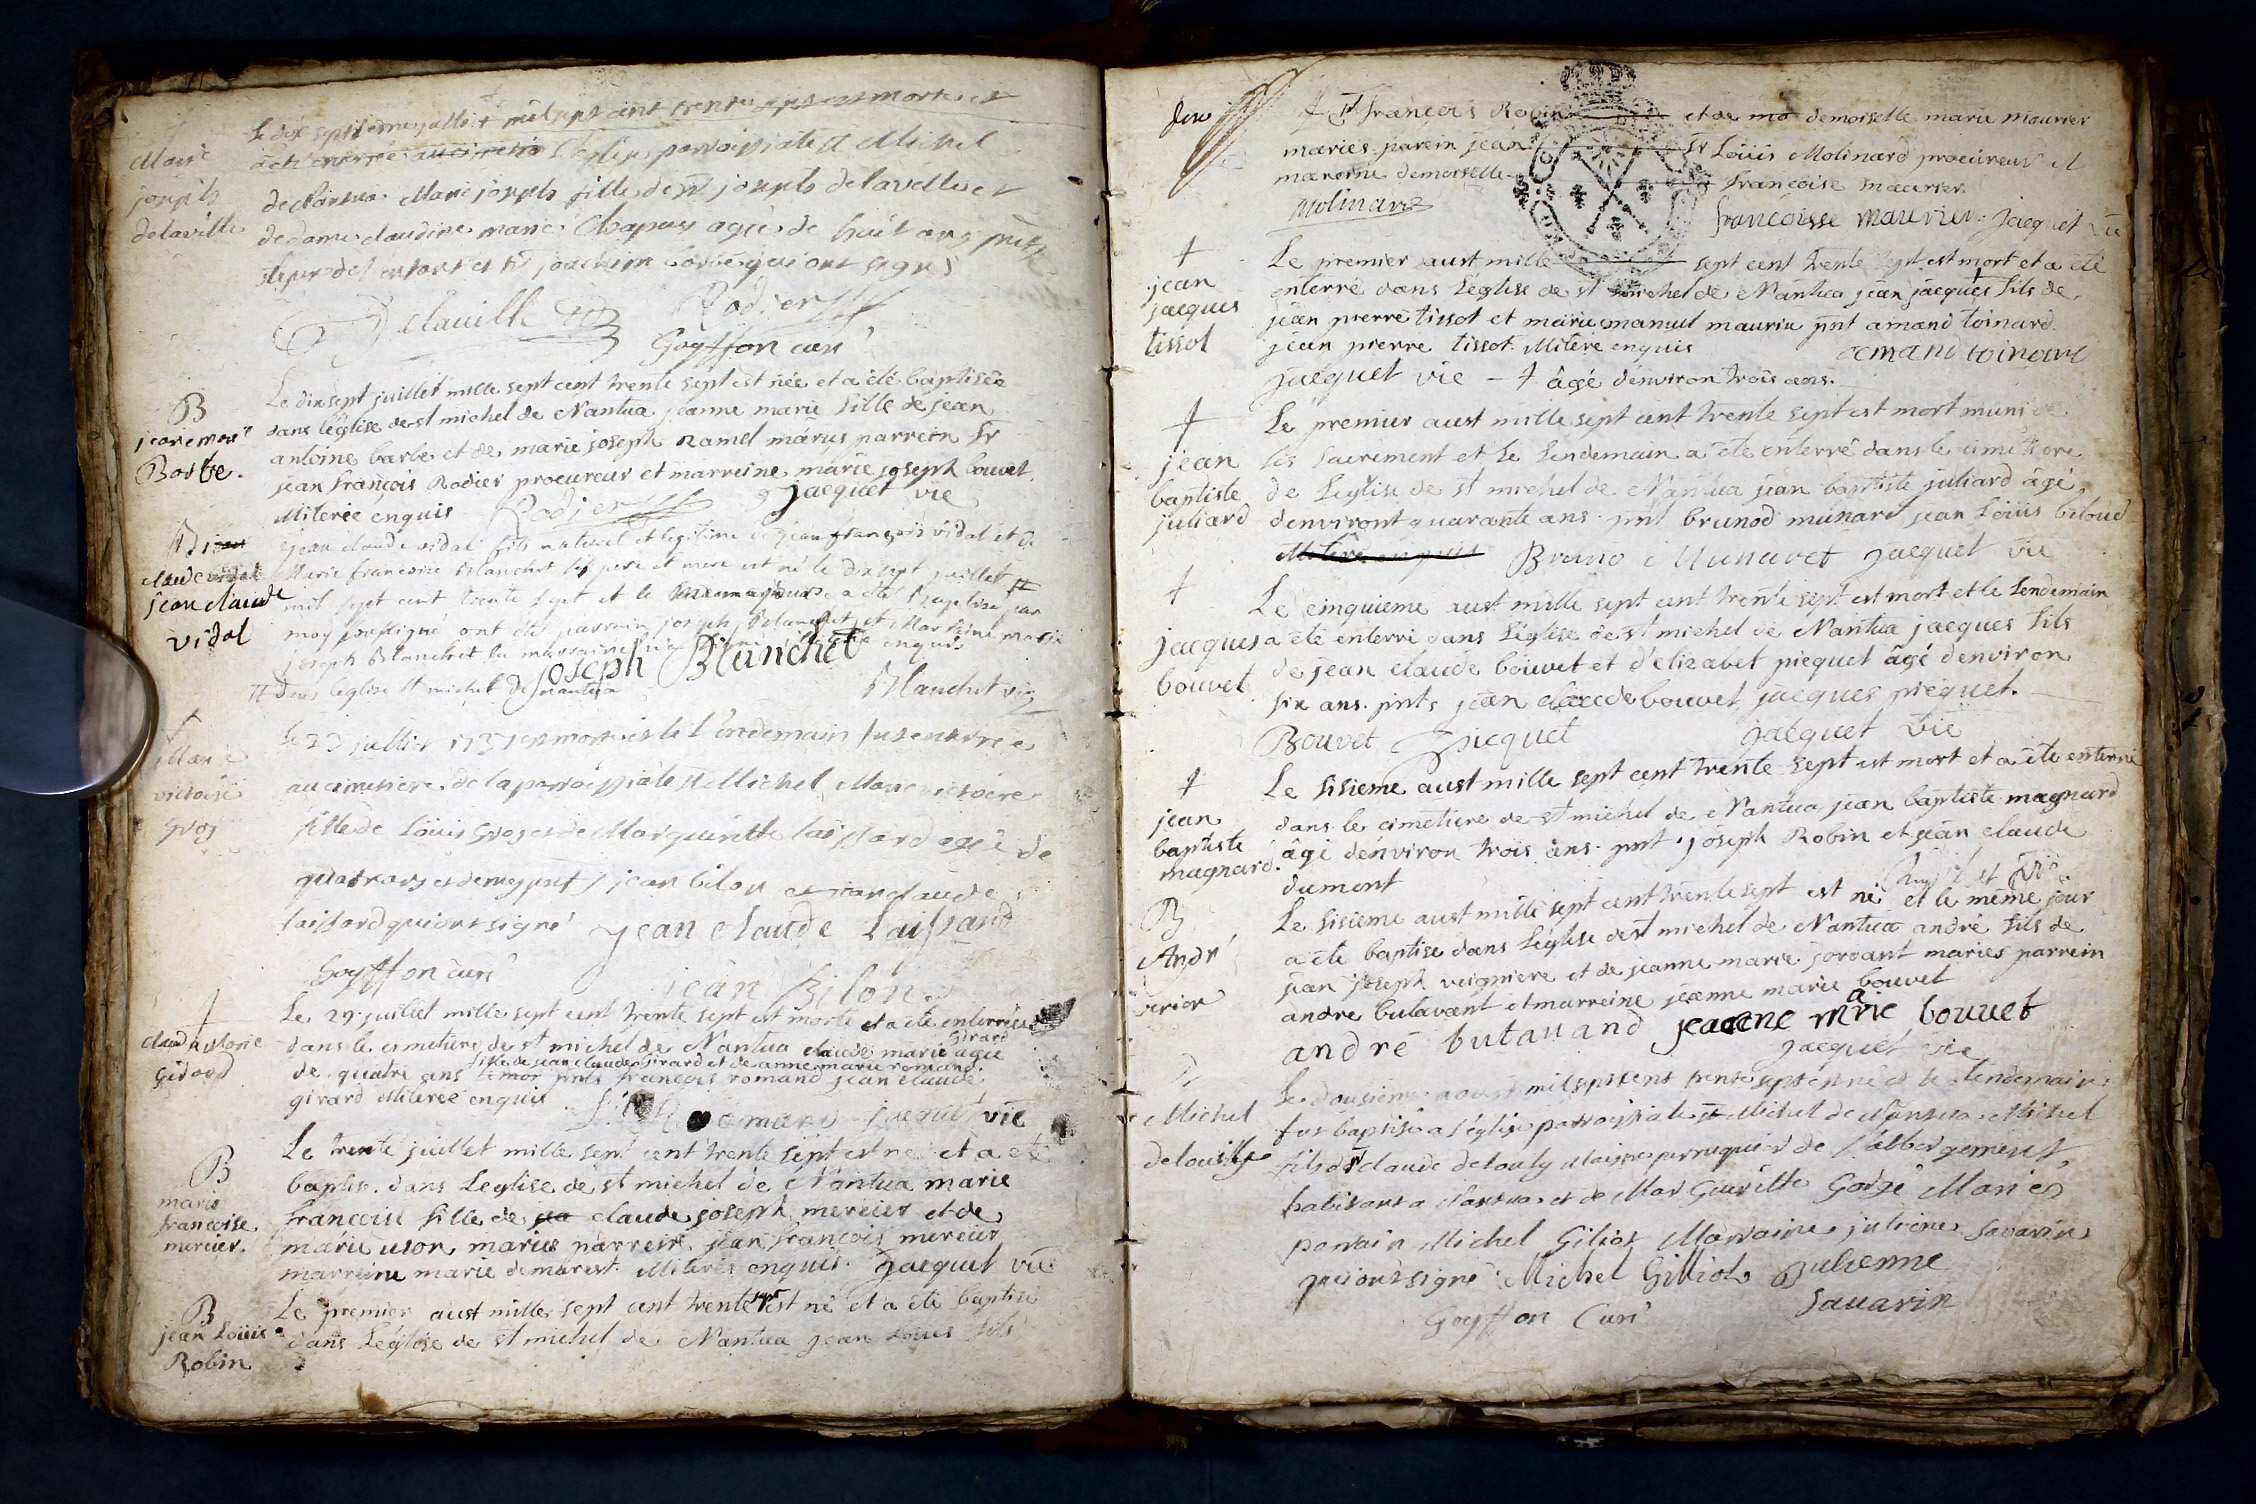 Marie
joseph
delaville
Le dix sept juillet mil sept cent trente sept est morte et
a été enterrée L'eglise parroissiale St Michel
de Nantua Marie joseph fille de Sr joseph delaville et
de dame claudine marie Chapuy agée de huit ans
le pere de l'enfant et Sr joachim Barbe qui ont signé
Delaville Rodier
Goyffon curé
B
jeane marie
Barbe.
Le dix sept juillet mille sept cent trente sept est née et a été baptisée
dans l'eglise de st michel de Nantua jeanne marie fille de jean
antoine barbe et de marie joseph ramel mariés parrein Sr
jean françois Rodier procureur et marreine marie joseph bouvet
illiterée enquis Rodier jacquet vic
B
claude vidal
jean claude
vidal
jean claude vidal fils naturel et legitime de jean françois vidal et de
Marie francoise Blanchet ses pere et mere est né le dix sept juillet
mil sept cent trente sept et le a été baptisé par
moy soussigné ont été parrain joseph Blanchet et Marraine marie
joseph Blanchet la marraine enquis
joseph Blanchet
# dans leglise st michel de nantua Blanchet vic
†
Marie
victoire
groz
le 23 juillet 1737 est morte et le l'endemain fut enterrée
au cimetiere de la parroissiale St Michel Marie victoire
fille de Loüis groz et de Margueritte laissard agée de
quatre ans et demy jean bilon et jean claude
laissard qui ont signé jean claude Laissard
Goyffon curé jean Bilon
†
claud
girard
Le 29 juillet mille sept cent trente sept est morte et a été enterrée
dans le cimetiere de st michel de Nantua claude marie girard agée
de quatre ans fille de jean claude girard et de anne marie romand
pnts françois romand jean claude
girard illiteré enquis Romand jacquet vic
B
marie
françoise
mercier.
Le trente juillet mille sept cent trente sept est né et a eté
baptis. dans Leglise de st michel de Nantua marie
françoise fille de claude joseph mercier et de
marie mariés parrein jean françois mercier
marreine marie demarest. illiterés enquis. jacquet vic
B
jean Loüis
Robin
Le premier aust mille sept cent trente sept est né et a été baptisé
dans Leglise de st michel de Nantua jean Loüis fils
de Sr françois Robin et de demoiselle marie maurier
mariés parein jean Sr Loüis Molinard procureur et
mareine demoiselle françoise maurier.
Molinard françoisse maurier jacquet vic
†
jean
jacques
tissot
Le premier aust mille sept cent trente sept est mort et a été
enterré dans L'église de st michel de Nantua jean jacques † fils de
jean pierre tissot et marie mauriu pnt amand toinard
jean pierre tissot illiteré enquis amand toinard
jacquet vic - † âgé d'environ trois ans.
†
jean
baptiste
juliard
Le premier aust mille sept cent trente sept est mort muni de
ses sacrement et le lendemain a été enterré dans le cimetiere
de Leglise de st michel de Nantua jean baptiste juliard âgé
denviront quarante ans. pnt brunod munard jean Loüis beloud
Bruno Munaret jacquet vic
†
jacques
bouvet
Le cinquieme aust mille sept cent trente sept est mort et le lendemain
a été enterré dans L'église de st michel de Nantua jacques fils
de jean claude bouvet et d'elizabet picquet âgé d'environ
six ans. pnts jean claude bouvet jacques picquet.
Bouvet Jpicquet jacquet vic
†
jean
baptiste
magnard.
Le sisieme aust mille sept cent trente sept est mort et a été enterré
dans le cimetiere de st michel de Nantua jean baptiste magnard
âgé d'environ trois ans. pnt joseph Robin et jean claude
dumont
B
André
Le sisieme aust mille sept cent trente sept est né et le même jour
a été baptise dans L'église de st michel de Nantua andré fils de
jean joseph et de jeanne marie mariés parrein
andre butavant et marreine jeanne marie bouvet
andré butavand jeanne marie bouvet
jacquet vic
Michel
delouilly
Le dousieme aoust mil sept cent trente sept est né et le lendemain
fut baptisé a l'église parroissiale St Michel de Nantua Michel
fils de Sr claude delouly Maistre perruquier de l'abbergement
habitant a Nantua et de Margueritte Gorge Mariés
parrain Michel Giliot Marraine julienne Savarin
qui ont signé Michel Gilliot Julienne
Goyffon Curé Savarin